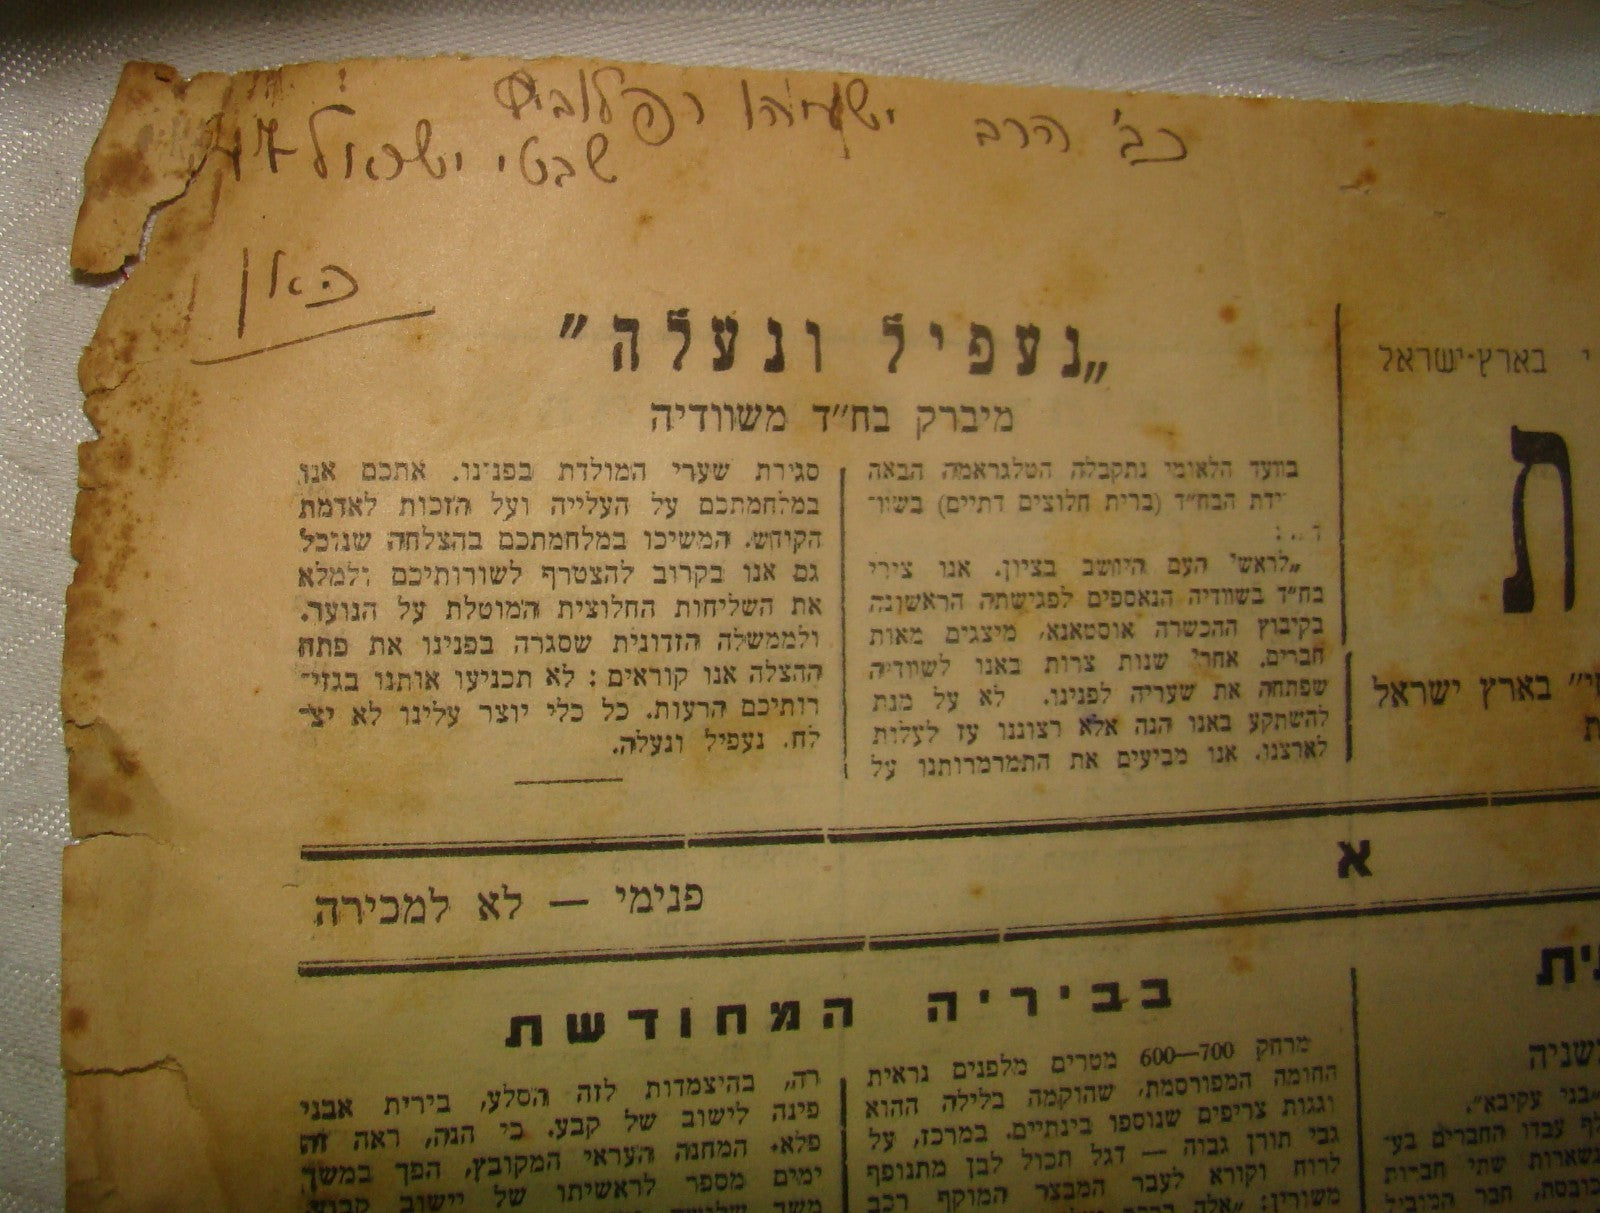 כב' הרב ישעיהו רפלוביץ
שבטי ישראל 47
כאן
י בארץ-ישראל
ת
י" בארץ ישראל
ת
„נעפיל ונעלה"
מיברק בח"ד משוודיה
בוועד הלאומי נתקבלה הטלגראמה הבאה
ידת הבח"ד (ברית חלוצים דתיים) בשוו־
„לראשי העם היושב בציון. אנו צירי
בח"ד בשוודיה הנאספים לפגישתה הראשונה
בקיבוץ ההכשרה אוסטאנא, מיצגים מאות
חברים. אחרי שנות צרות באנו לשוודיה
שפתחה את שעריה לפנינו. לא על מנת
להשתקע באנו הנה אלא רצוננו עז לעלות
לארצנו. אנו מביעים את התמרמרותנו על
סגירת שערי המולדת בפנינו. אתכם אנו
במלחמתכם על העלייה ועל הזכות לאדמת
הקודש. המשיכו במלחמתכם בהצלחה שנוכל
גם אנו בקרוב להצטרף לשורותיכם ולמלא
את השליחות החלוצית המוטלת על הנוער.
ולממשלה הזדונית שסגרה בפנינו את פתח
ההצלה אנו קוראים: לא תכניעו אותנו בגזי־
רותיכם הרעות. כל כלי יוצר עלינו לא יצ־
לח. נעפיל ונעלה.
א
פנימי — לא למכירה
ית
שניה
„בני עקיבא".
לף עבדו החברים בע־
נשארות שתי חברות
בביריה המחודשת
מרחק 600—700 מטרים מלפנים נראית
החומה המפורסמת, שהוקמה בלילה ההוא
וגגות צריפים שנוספו בינתיים. במרכז, על
גבי תורן גבוה — דגל תכול לבן מתנופף
לרוח וקורא לעבר המבצר המוקף רכב
משורין: „אלה
רה, בהיצמדות לזה הסלע, בירית אבני
פינה לישוב של קבע. כי הנה, ראה זה
פלא. המחנה העראי המקובץ, הפך במשך
ימים מספר לראשיתו של יישוב קבוע.